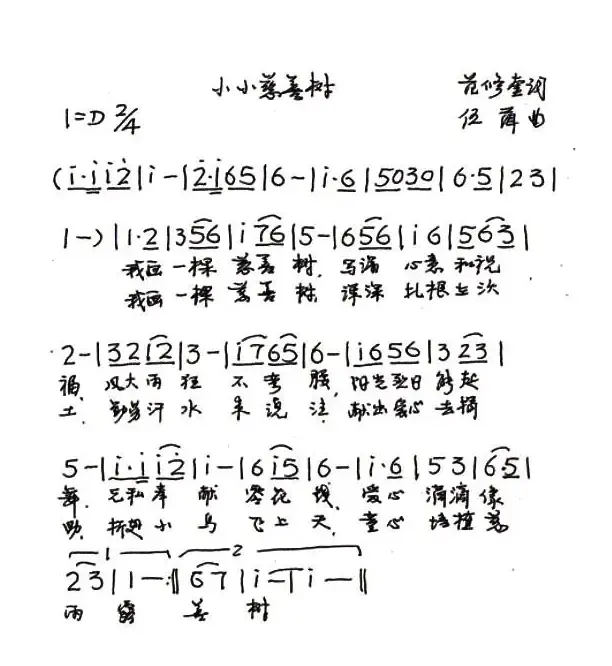 小小慈善树
范修奎词
1=D 2/4
伍 薛 曲
(i·i i2|i-|2·i65|6-|i·6|5030|6·5|23|
1-)|1·2|356|i76|5-|656|i6|563|
我画一棵 慈善 树, 写满 心意 和祝
我画一棵 慈善 树 深深 扎根
2-|32i2|3-|i765|6-|i656|323|
福, 风大雨 狂 不 弯 腰, 阳光 日 起
土, 汗 水 来 浇 注, 献出爱心 去
5-|i·i i2|i-|6i5|6-|i·6|53|6·5|
舞, 无私奉 献 零花 钱, 爱心 滴滴 像
小 鸟 飞上 天, 童心 培植 慈
1 2
23|1-:‖67|i-|i-‖
雨 露 善 树